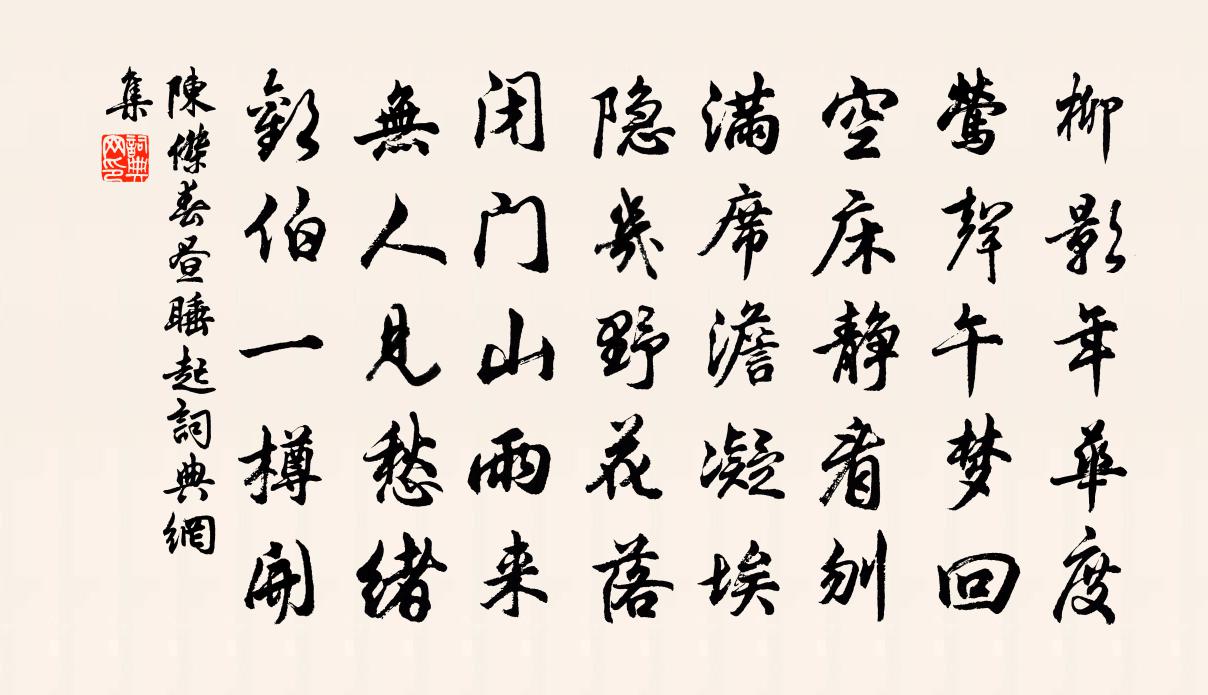 柳影年華度
莺聲午梦回
空床静看
满席澹凝埃
隐幾野花落
闭门山雨来
無人見愁緒
歡伯一樽開
陳傑春昼睡起詞典網
集
詞典
网印